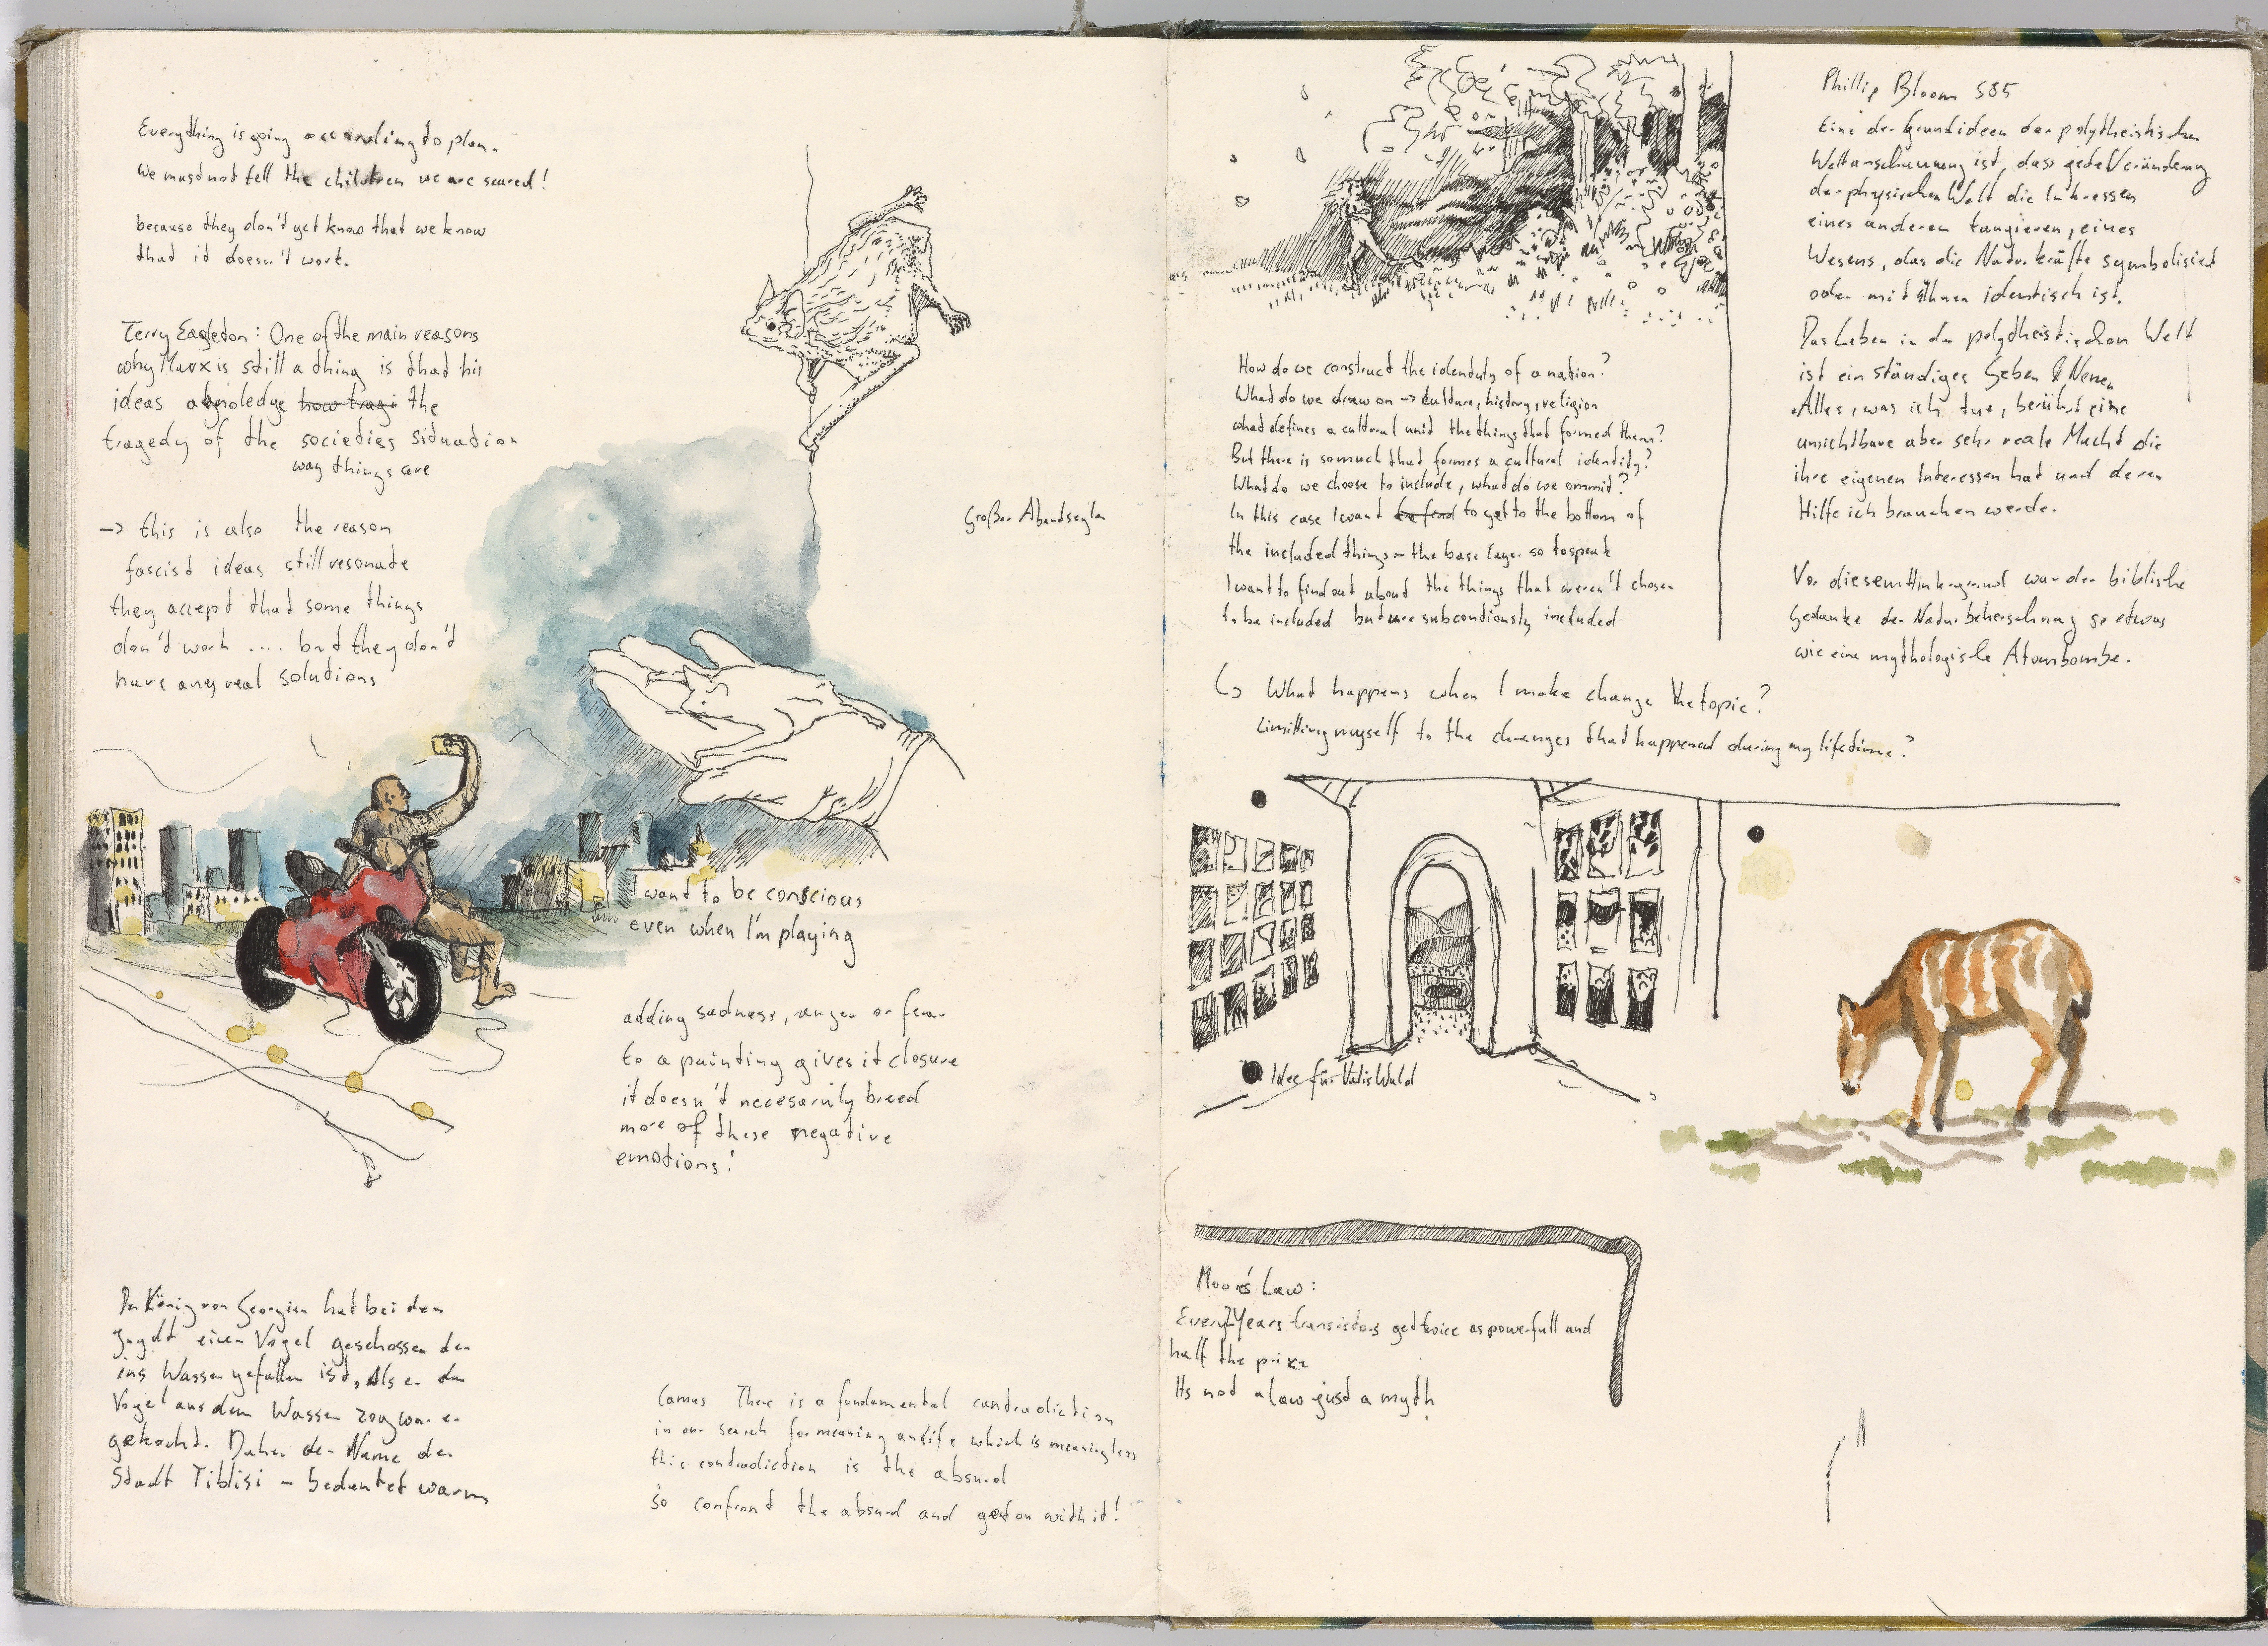 Everything is going according to plan.
We must not tell the children we are scared!
because they don't yet know that we know
that it doesn't work.
Terry Eagleton: One of the main reasons
why Marx is still a thing is that his
ideas aknoledge how tragi the
tragedy of the societies situation
way things are
-> this is also the reason
fascist ideas still resonate
they accept that some things
don't work .... but they don't
have any real solutions
Großer Abendsegler
I want to be conscious
even when I'm playing
adding sadness, anger or fear
to a painting gives it closure
it doesn't necesarily breed
more of these negative
emotions!
Der König von Georgien hat bei der
Jagdt einen Vogel geschossen der
ins Wasser gefallen ist, Als er den
Vogel aus dem Wasser zog war er
gekocht. Daher der Name der
Stadt Tiblisi - bedeutet warm
Camus There is a fundamental contradiction
in our search for meaning and life which is meaningless
this contradiction is the absurd
So confront the absurd and get on with it!
How do we construct the identity of a nation?
What do we draw on -> culture, history, religion
what defines a cultural unit the things that formed them?
But there is so much that formes a cultural identity?
What do we choose to include, what do we ommit?
In this case I want to find to get to the bottom of
the included things - the base layer so to speak
I want to find out about the things that weren't chosen
to be included but are subcontiously included
↳ What happens when I make change the topic?
Limitting myself to the changes that happened during my lifetime?
Idee für Wald
Moore's Law:
Every 2 Years transistors get twice as powerfull and
half the price
Its not a law just a myth
Phillip Bloom S85
Eine der Grundideen der polytheistischen
Weltanschauung ist, dass jede Veränderung
der physischen Welt die Interessen
eines anderen tangieren, eines
Wesens, das die Naturkräfte symbolisiert
oder mit ihnen identisch ist.
Das Leben in der polytheistischen Welt
ist ein ständiges Geben & Nemen
Alles, was ich tue, berührt eine
unsichtbare aber sehr reale Macht die
ihre eigenen Interessen hat und deren
Hilfe ich brauchen werde.
Vor diesem Hintergrund war der biblische
Gedanke der Naturbeherschung so etwas
wie eine mythologische Atombombe.